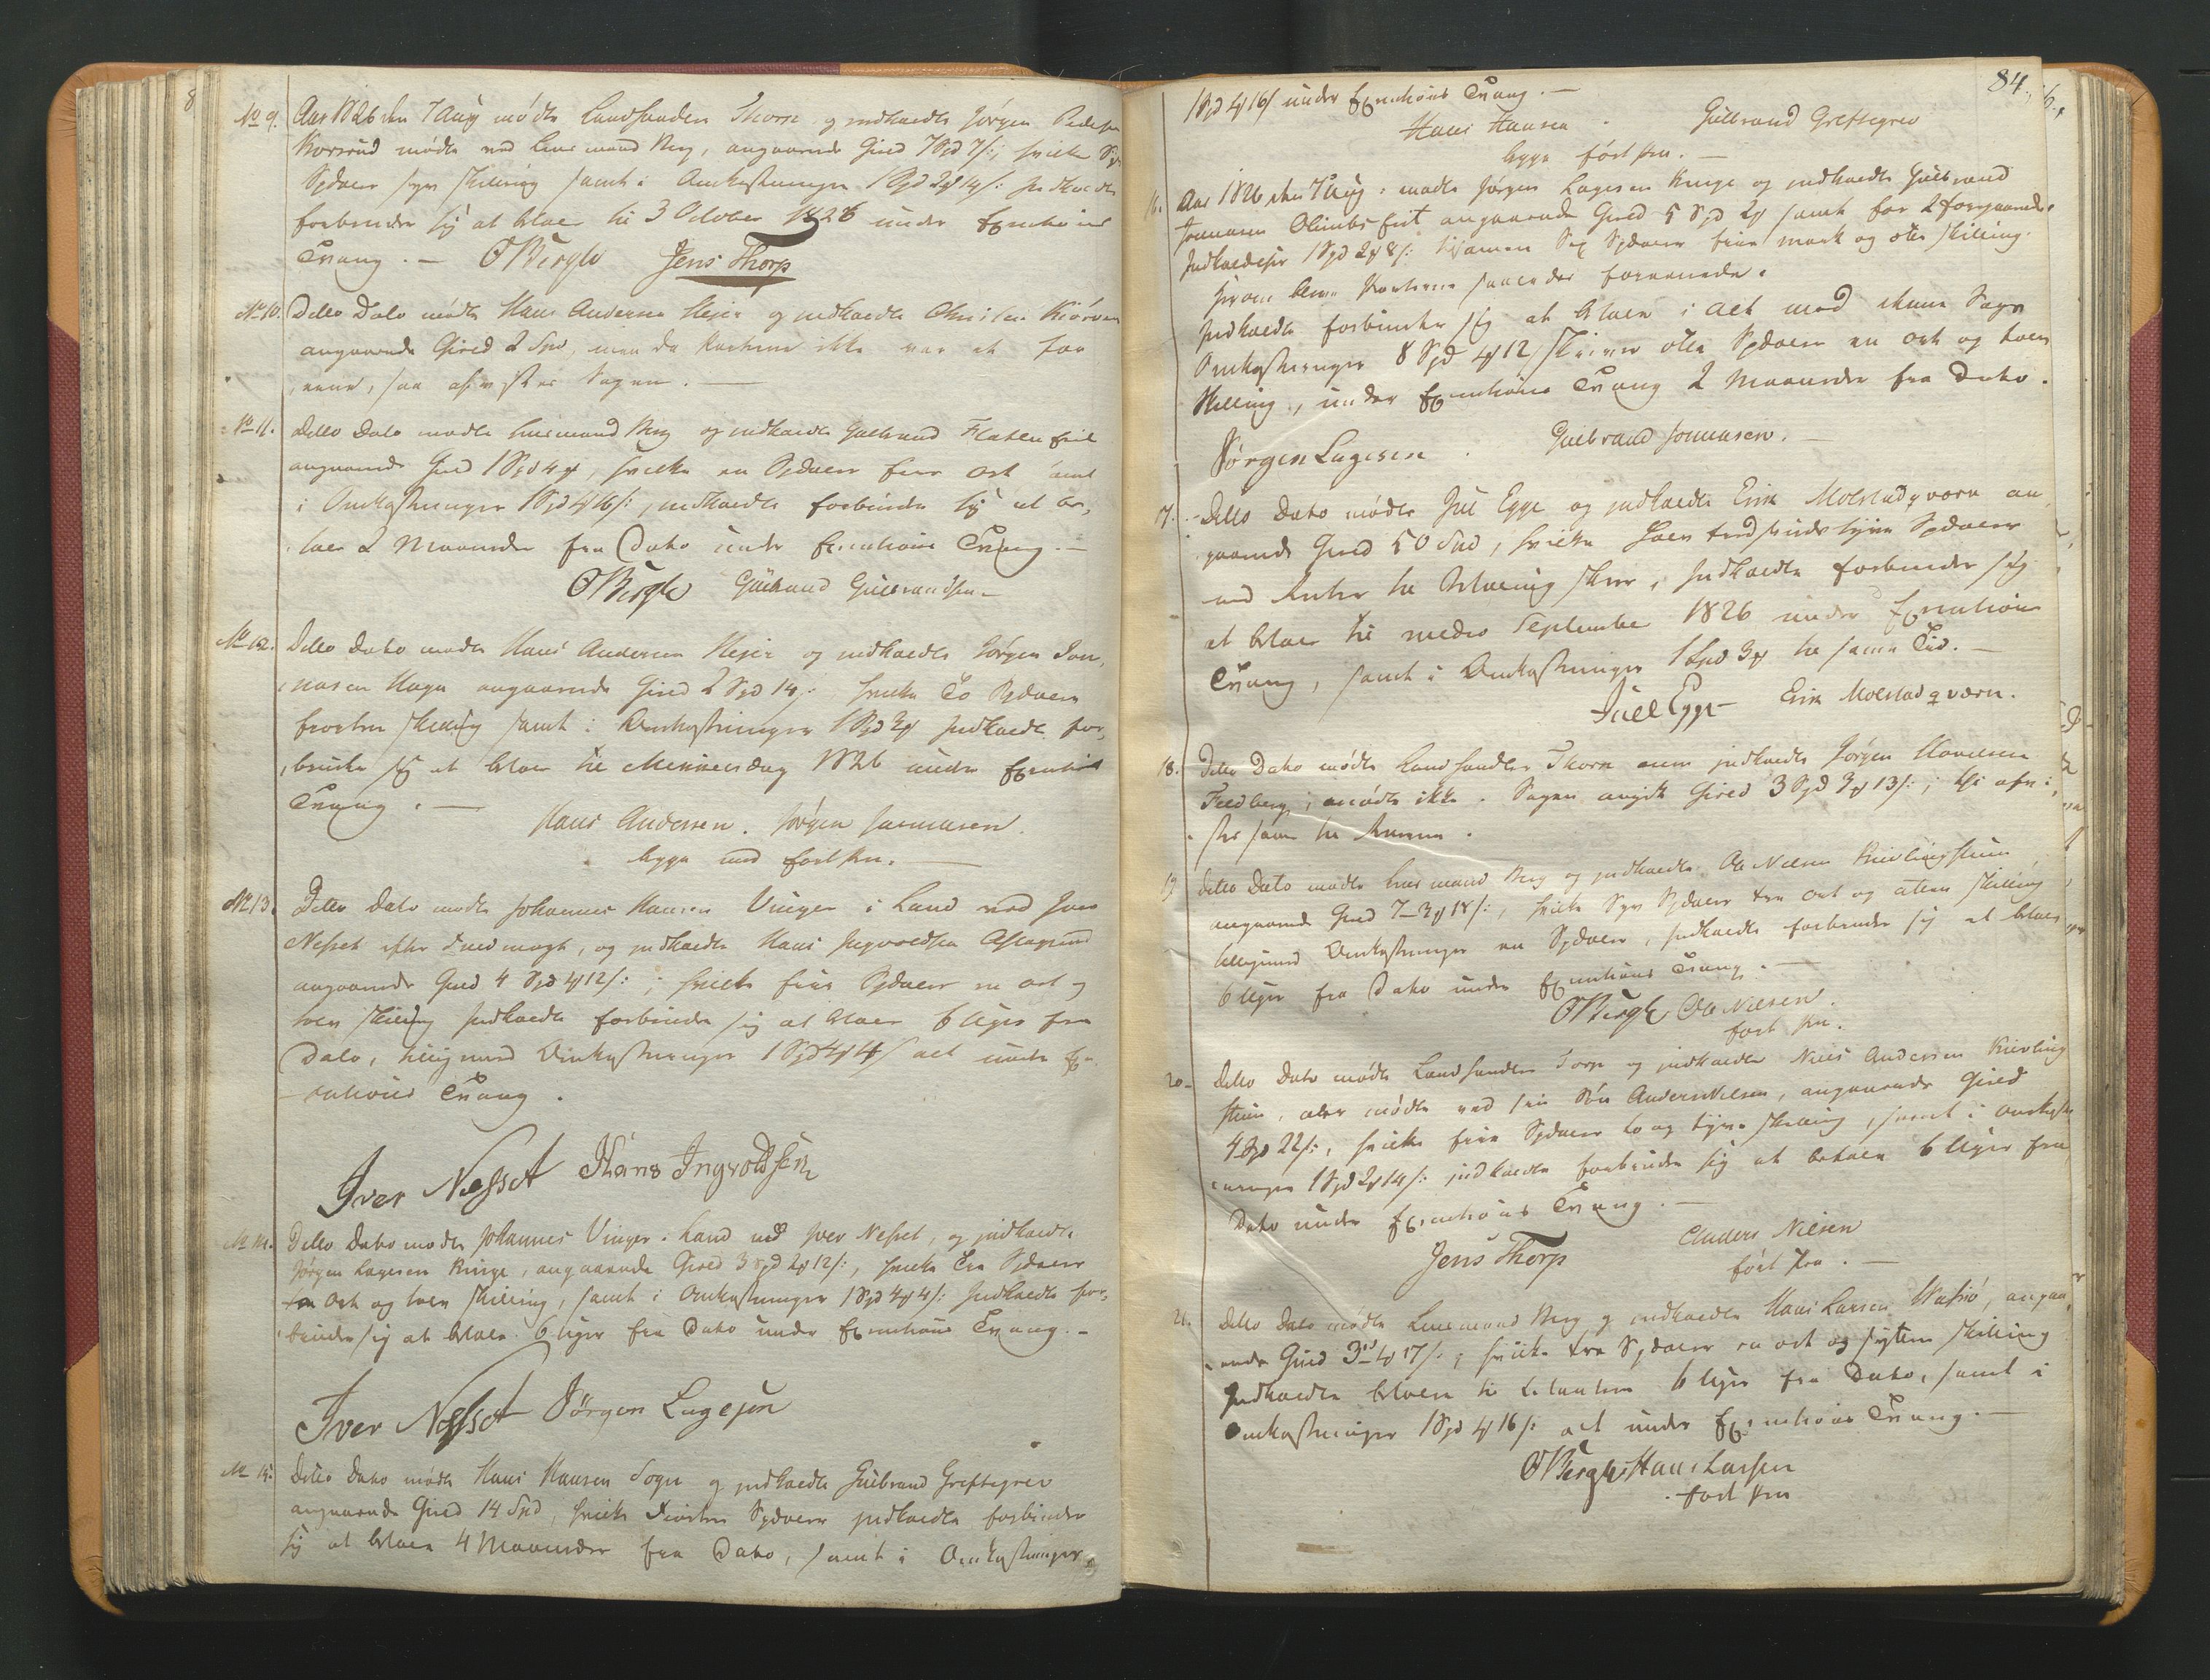 No 9. Aar 1826 den 7 Aug mødte Landhandler Thorp og indkaldte Jørgen Pedersen
Korsrud mødte ved Lensmand Berg, angaaende Gield 7 Spd 7 s:, hvilke Syv
Spdaler syv skilling samt i Omkostninger 1 Spd 2 # 14 s: Indkaldte
forbinder sig at betale til 3 October 1826 under Executions
Tvang. — OBergh Jens Thorp
No 10. Ditto Dato mødte Hans Andersen Hejer og indkaldte Christen
angaaende Gield 2 Spd, men da Parterne ikke var at for
eene, saa afvistes Sagen. —
No 11. Ditto Dato mødte Lensmand Berg og indkaldte Gulbrand Flateneiet
angaaende Gield 1 Spd 4 #, hvilke en Spdaler fire ort samt
i Omkostninger 1 Spd 4 # 16 s:, indkaldte forbinder sig at be,
tale 2 Maaneder fra Dato under Executions Tvang. —
OBergh Gulbrand Gulbrandsen —
No 12. Ditto Dato mødte Hans Andersen Hejer og indkaldte Jørgen Jon,
nasen Hagen angaaende Gield 2 Spd 14 s: hvilke To Spdaler
fiorten skilling samt i Omkostninger 1 Spd 3 # Indkaldte for,
binder sig at betale til Mikkelsdag 1826 under Executions
Tvang. — Hans Andersen. Jørgen Jonnasen.
begge med ført Pen. —
No 13. Ditto Dato mødte Johannes Hansen Vinger i Land ved Iver
Nesset efter Fuldmagt, og indkaldte Hans Ingvoldsen
angaaende Gield 4 Spd 4 # 12 s:; hvilke fire Spdaler en ort og
tolv skilling Indkaldte forbinder sig at betale 6 Uger fra
Dato, tilligemed Omkostninger 1 Spd 4 # 4 s alt under Ex-
ecutions Tvang.
Iver Nesset Hans Ingvoldsen
No 14. Ditto Dato mødte Johannes Vinger i Land ved Iver Nesset, og indkaldte
Jørgen Lagesen Ringe, angaaende Gield 3 Spd 2 # 12 s:, hvilke Tre Spdaler
to Ort og tolv skilling, samt i Omkostninger 1 Spd 4 # 4 s: Indkaldte for,
binder sig at betale 6 Uger fra Dato under Executions Tvang. —
Iver Nesset Jørgen Lagesen
No 15. Ditto Dato mødte Hans Hansen Sogn og indkaldte Gulbrand Greftegrev
angaaende Gield 14 Spd, hvilke Fiorten Spdaler indkaldte forbinder
sig at betale 4 Maaneder fra Dato, samt i Omkostninger
84.
1 Spd 4 # 16 s under Executions Tvang. —
Hans Hansen. Gulbrand Greftegrev
begge ført Pen. —
16. Aar 1826 den 7 Aug: mødte Jørgen Lagesen Ringe og indkaldte Gulbrand
Jonnasen angaaende Gield 5 Spd 2 # samt for 2 foregaaende
Indkaldelser 1 Spd 2 # 8 s: tilsammen Sex Spdaler fire mark og otte skilling.
hvorom blev Parterne saaledes foreenede.
Indkaldte forbinder sig at betale i alt med denne Sags
Omkostninger 8 Spd 4 # 12 s skriver otte Spdaler en ort og tolv
skilling, under Executions Tvang 2 Maaneder fra Dato.
Jørgen Lagesen. Gulbrand Jonnasen. —
17. Ditto Dato mødte Juel Egge og indkaldte Erik Molstadqværn an
gaaende Gield 50 Spd, hvilke Halvtredsindstyve Spdaler
med Renter til Betaling skeer, Indkaldte forbinder sig
at betale til medio September 1826 under Executions
Tvang, samt i Omkostninger 1 Spd 3 # til samme Tid. —
Juel Egge — Erik Molstadqværn.
18. Ditto Dato mødte Landhandler Thorp men indkaldte Jørgen
Feldberg, mødte ikke. Sagen angik Gield 3 Spd 3 # 13 s:; thi afvi,
stes samme til Retten.
19 Ditto Dato mødte Lensmand Berg og indkaldte Ole Nielsen
angaaende Gield 7 — 3 # 18 s:, hvilke Syv Spdaler tre ort og atten skilling
tilligemed Omkostninger en Spdaler, Indkaldte forbinder sig at betale
6 Uger fra Dato under Executions Tvang. —
OBergh Ole Nielsen.
ført Pen.
20 — Ditto Dato mødte Landhandler Torp og indkaldte Niels Andersen Kievling
stuen, eller mødte ved sin Søn Anders Nielsen, angaaende Gield
4 Spd 22 s:, hvilke fire Spdaler to og tyve skilling, samt i Omkost
ninger 1 Spd 2 # 14 s: indkaldte forbinder sig at betale 6 Uger fra
Dato under Executions Tvang. —
Jens Thorp Anders Nielsen
ført Pen. —
21. Ditto Dato mødte Lensmand Berg og indkaldte Hans Larsen, angaa,
ende Gield 3 — 4 # 17 s:, hvilke tre Spdaler en ort og sytten skilling
Indkaldte betaler til Citanten 6 Uger fra Dato, samt i
Omkostninger 1 Spd 4 # 16 s: alt under Executions Tvang. —
OBergh Hans Larsen
ført Pen